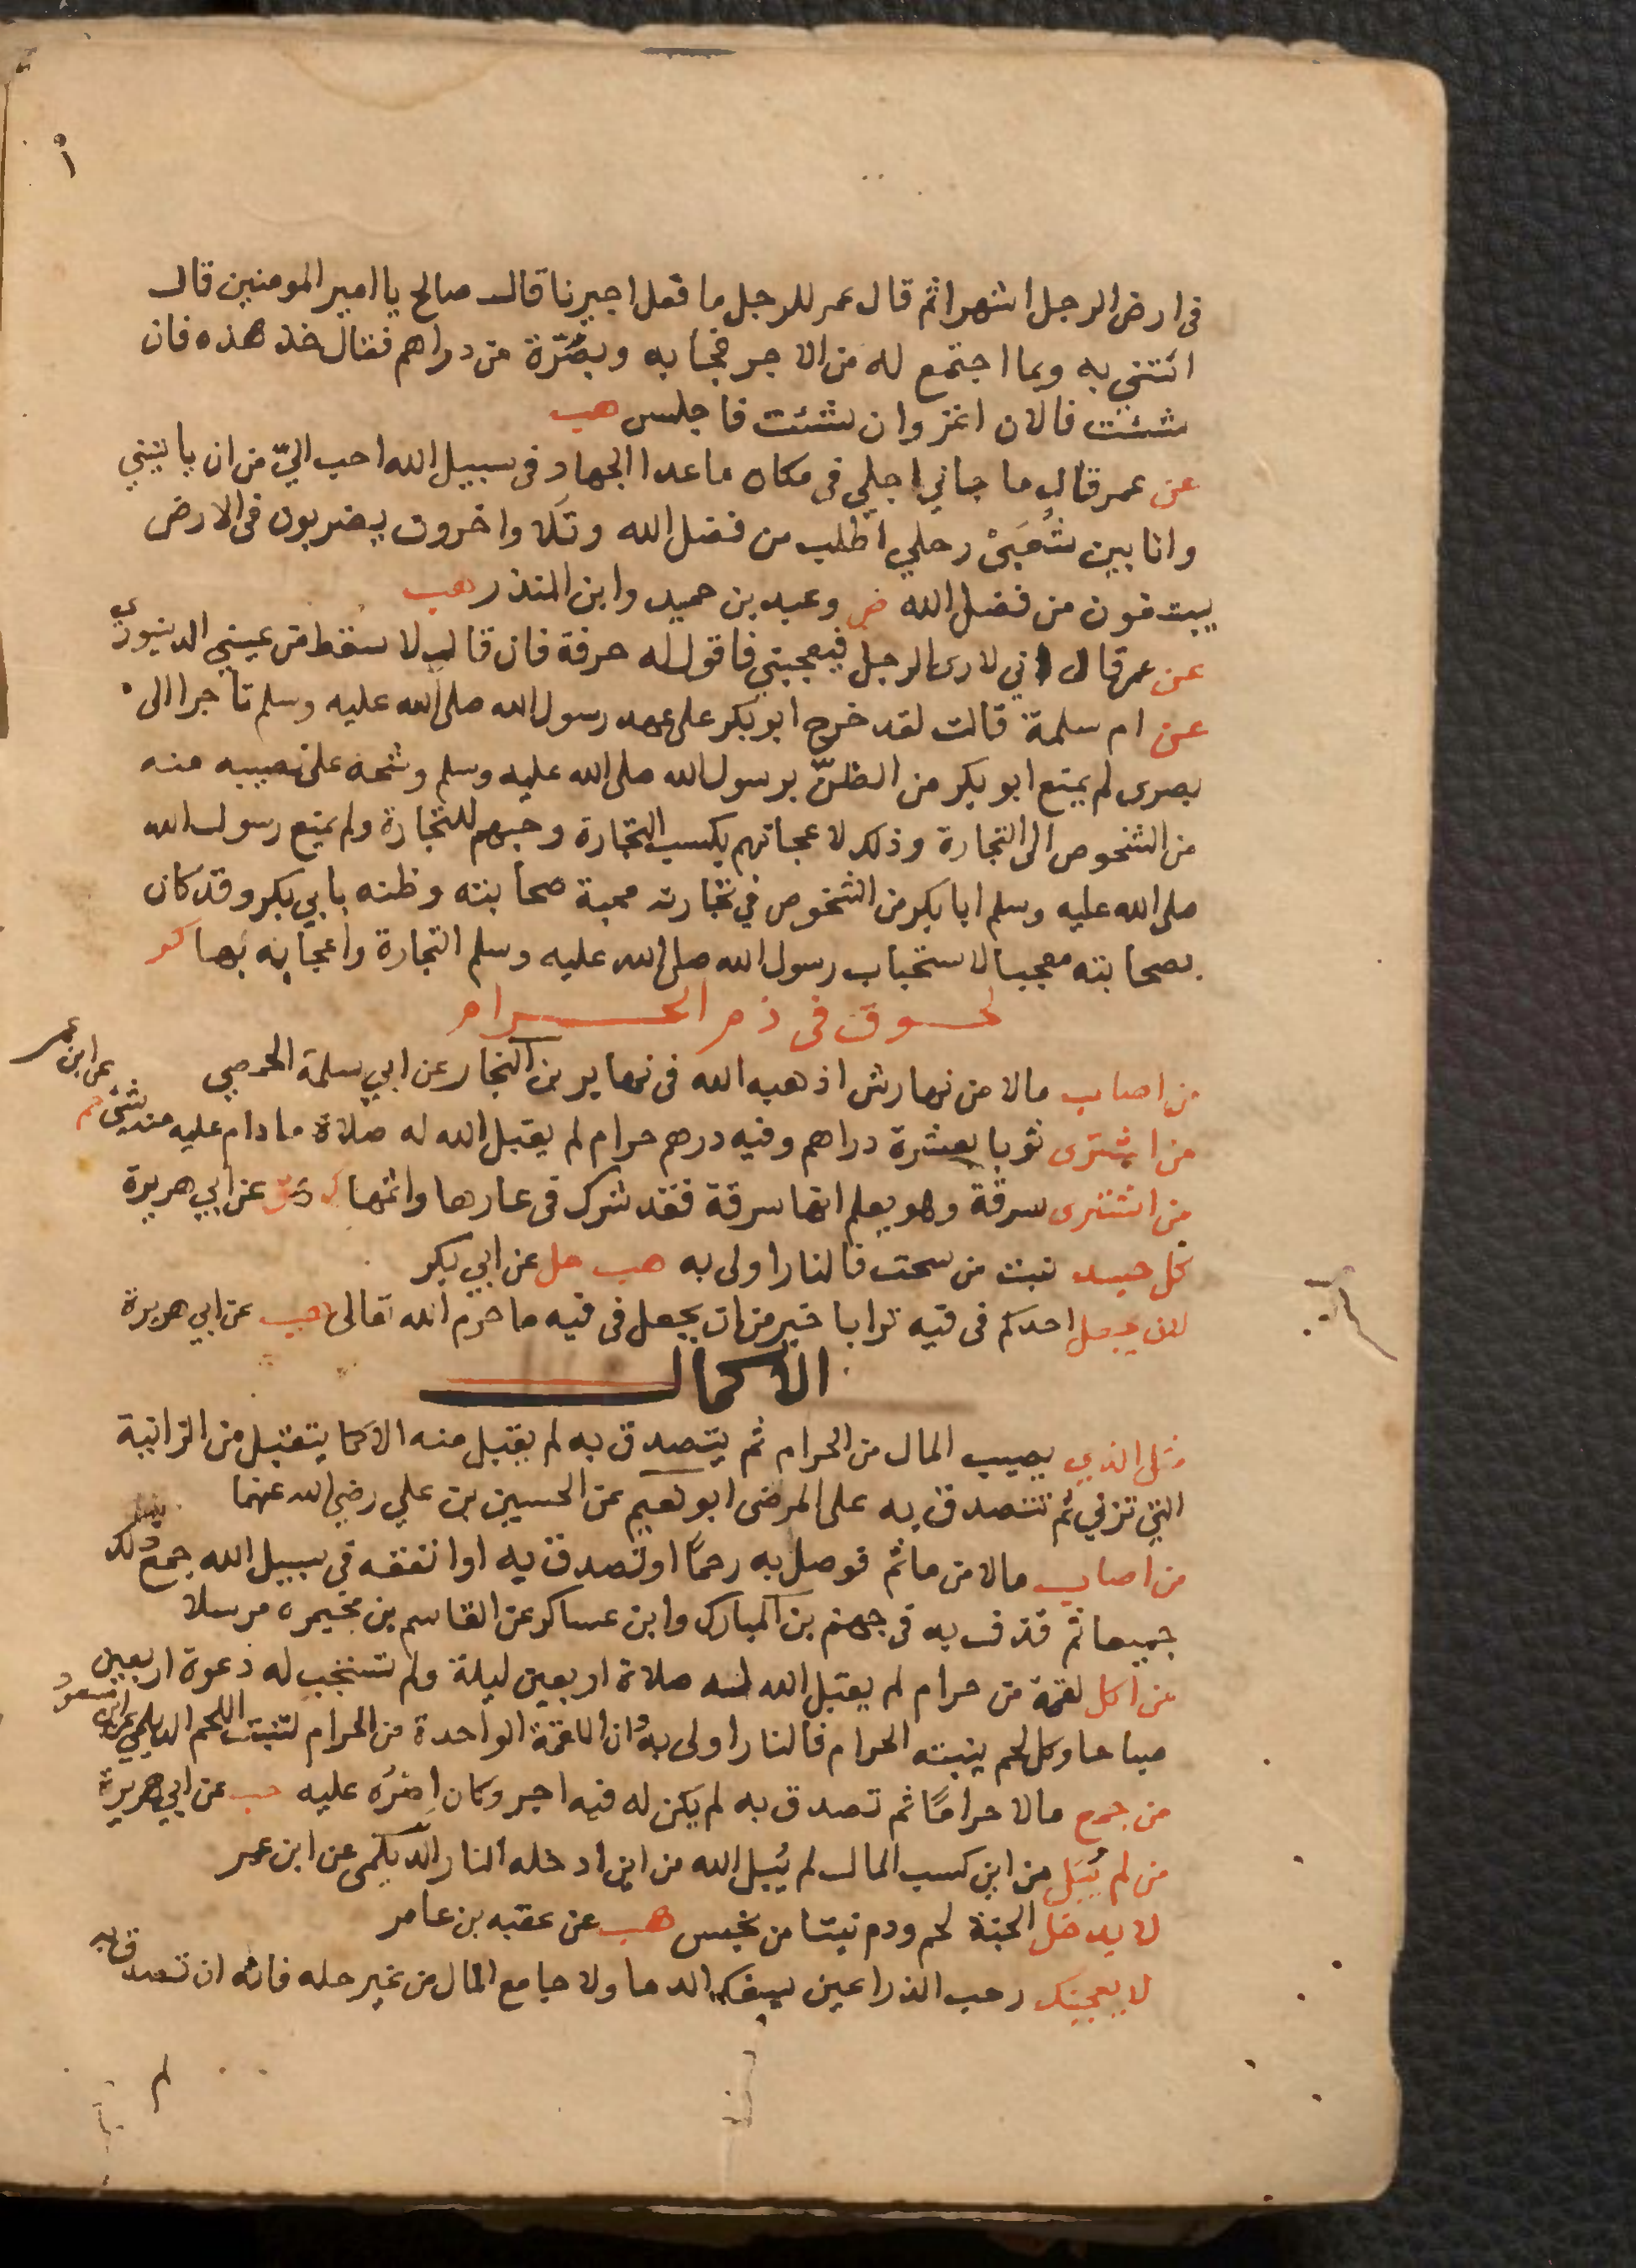 في ارض الرجل اشهرا ثم قال عمر للرجل ما فعل اجيرنا قال صالح يا امير المومنين قال
ائتني به وبما اجتمع له من الاجر فجا به وبصُرّة من دراهم فقال خذ هذه فان
شئت فالان اغز وان شئت فاجلس هب
عن عمر قال ما جاني اجلي في مكان ما عدا الجهاد في سبيل الله احب اليّ من ان ياتيني
وانا بين شُعبَيْ رحلي اطلب من فضل الله وتلا واخرون يضربون في الارض
يبتغون من فضل الله ص وعبد بن حميد وابن المنذر هب
عن عمر قال اني لارى الرجل فيعجبني فاقول له حرفة فان قال لا سقط من عيني الدينوري
عن ام سلمة قالت لقد خرج ابو بكر على عهد رسول الله صلى الله عليه وسلم تاجرا الى
بصرى لم يمنع ابو بكر من الظنّ برسول الله صلى الله عليه وسلم وشحه على نصيبه منه
من الشخوص الى التجارة وذلك لاعجابهم بكسب التجارة وحبهم للتجارة ولم يمنع رسول الله
صلى الله عليه وسلم ابا بكر من الشخوص في تجارته محبة صحابته وظنه بابي بكر وقد كان
بصحابته معجبا لاستحباب رسول الله صلى الله عليه وسلم التجارة واعجابه بها كر
لحوق في ذم الحرام
من اصاب مالا من نهاوش اذهبه الله في نهابر بن النجار عن ابي سلمة الحمصي
من اشترى ثوبا بعشرة دراهم وفيه درهم حرام لم يقبل الله له صلاة ما دام عليه منه شئ حم عن ابن عمر
من اشترى سرقة وهو يعلم انها سرقة فقد شرك في عارها واثمها ك هق عن ابي هريرة
كل جسد نبت من سحت فالنار اولى به هب حل عن ابي بكر
لان يجعل احدكم في فيه ترابا خير من ان يجعل في فيه ما حرم الله تعالى هب عن ابي هريرة
الاكمال
مثل الذي يصيب المال من الحرام ثم يتصدق به لم يقبل منه الا كما يتقبل من الزانية
التي تزني ثم تتصدق به على المرضى ابو نعيم عن الحسين بن علي رضي الله عنهما
من اصاب مالا من ماثم فوصل به رحماً او تصدق به او انفقه في سبيل الله جمع ذلك
جميعا ثم قذف به في جهنم بن المبارك وابن عساكر عن القاسم بن مخيمره مرسلا
من اكل لقمة من حرام لم يقبل الله له صلاة اربعين ليلة ولم تستجب له دعوة اربعين
صباحا وكل لحم ينبته الحرام فالنار اولى به وان اللقمة الواحدة من الحرام لتنبت اللحم الديلمي عن ابن مسعود
من جمع مالا حراماً ثم تصدق به لم يكن له فيه اجر وكان اصره عليه حب عن ابي هريرة
من لم يُبَل من اين كسب المال لم يُبل الله من اين ادخله النار الديلمي عن ابن عمر
لا يدخل الجنة لحم ودم نبتا من نجس هب عن عقبه بن عامر
لا يعجبنك رحب الذراعين يسفك الدما ولا جامع المال من غير حله فانه ان تصدق به
لم